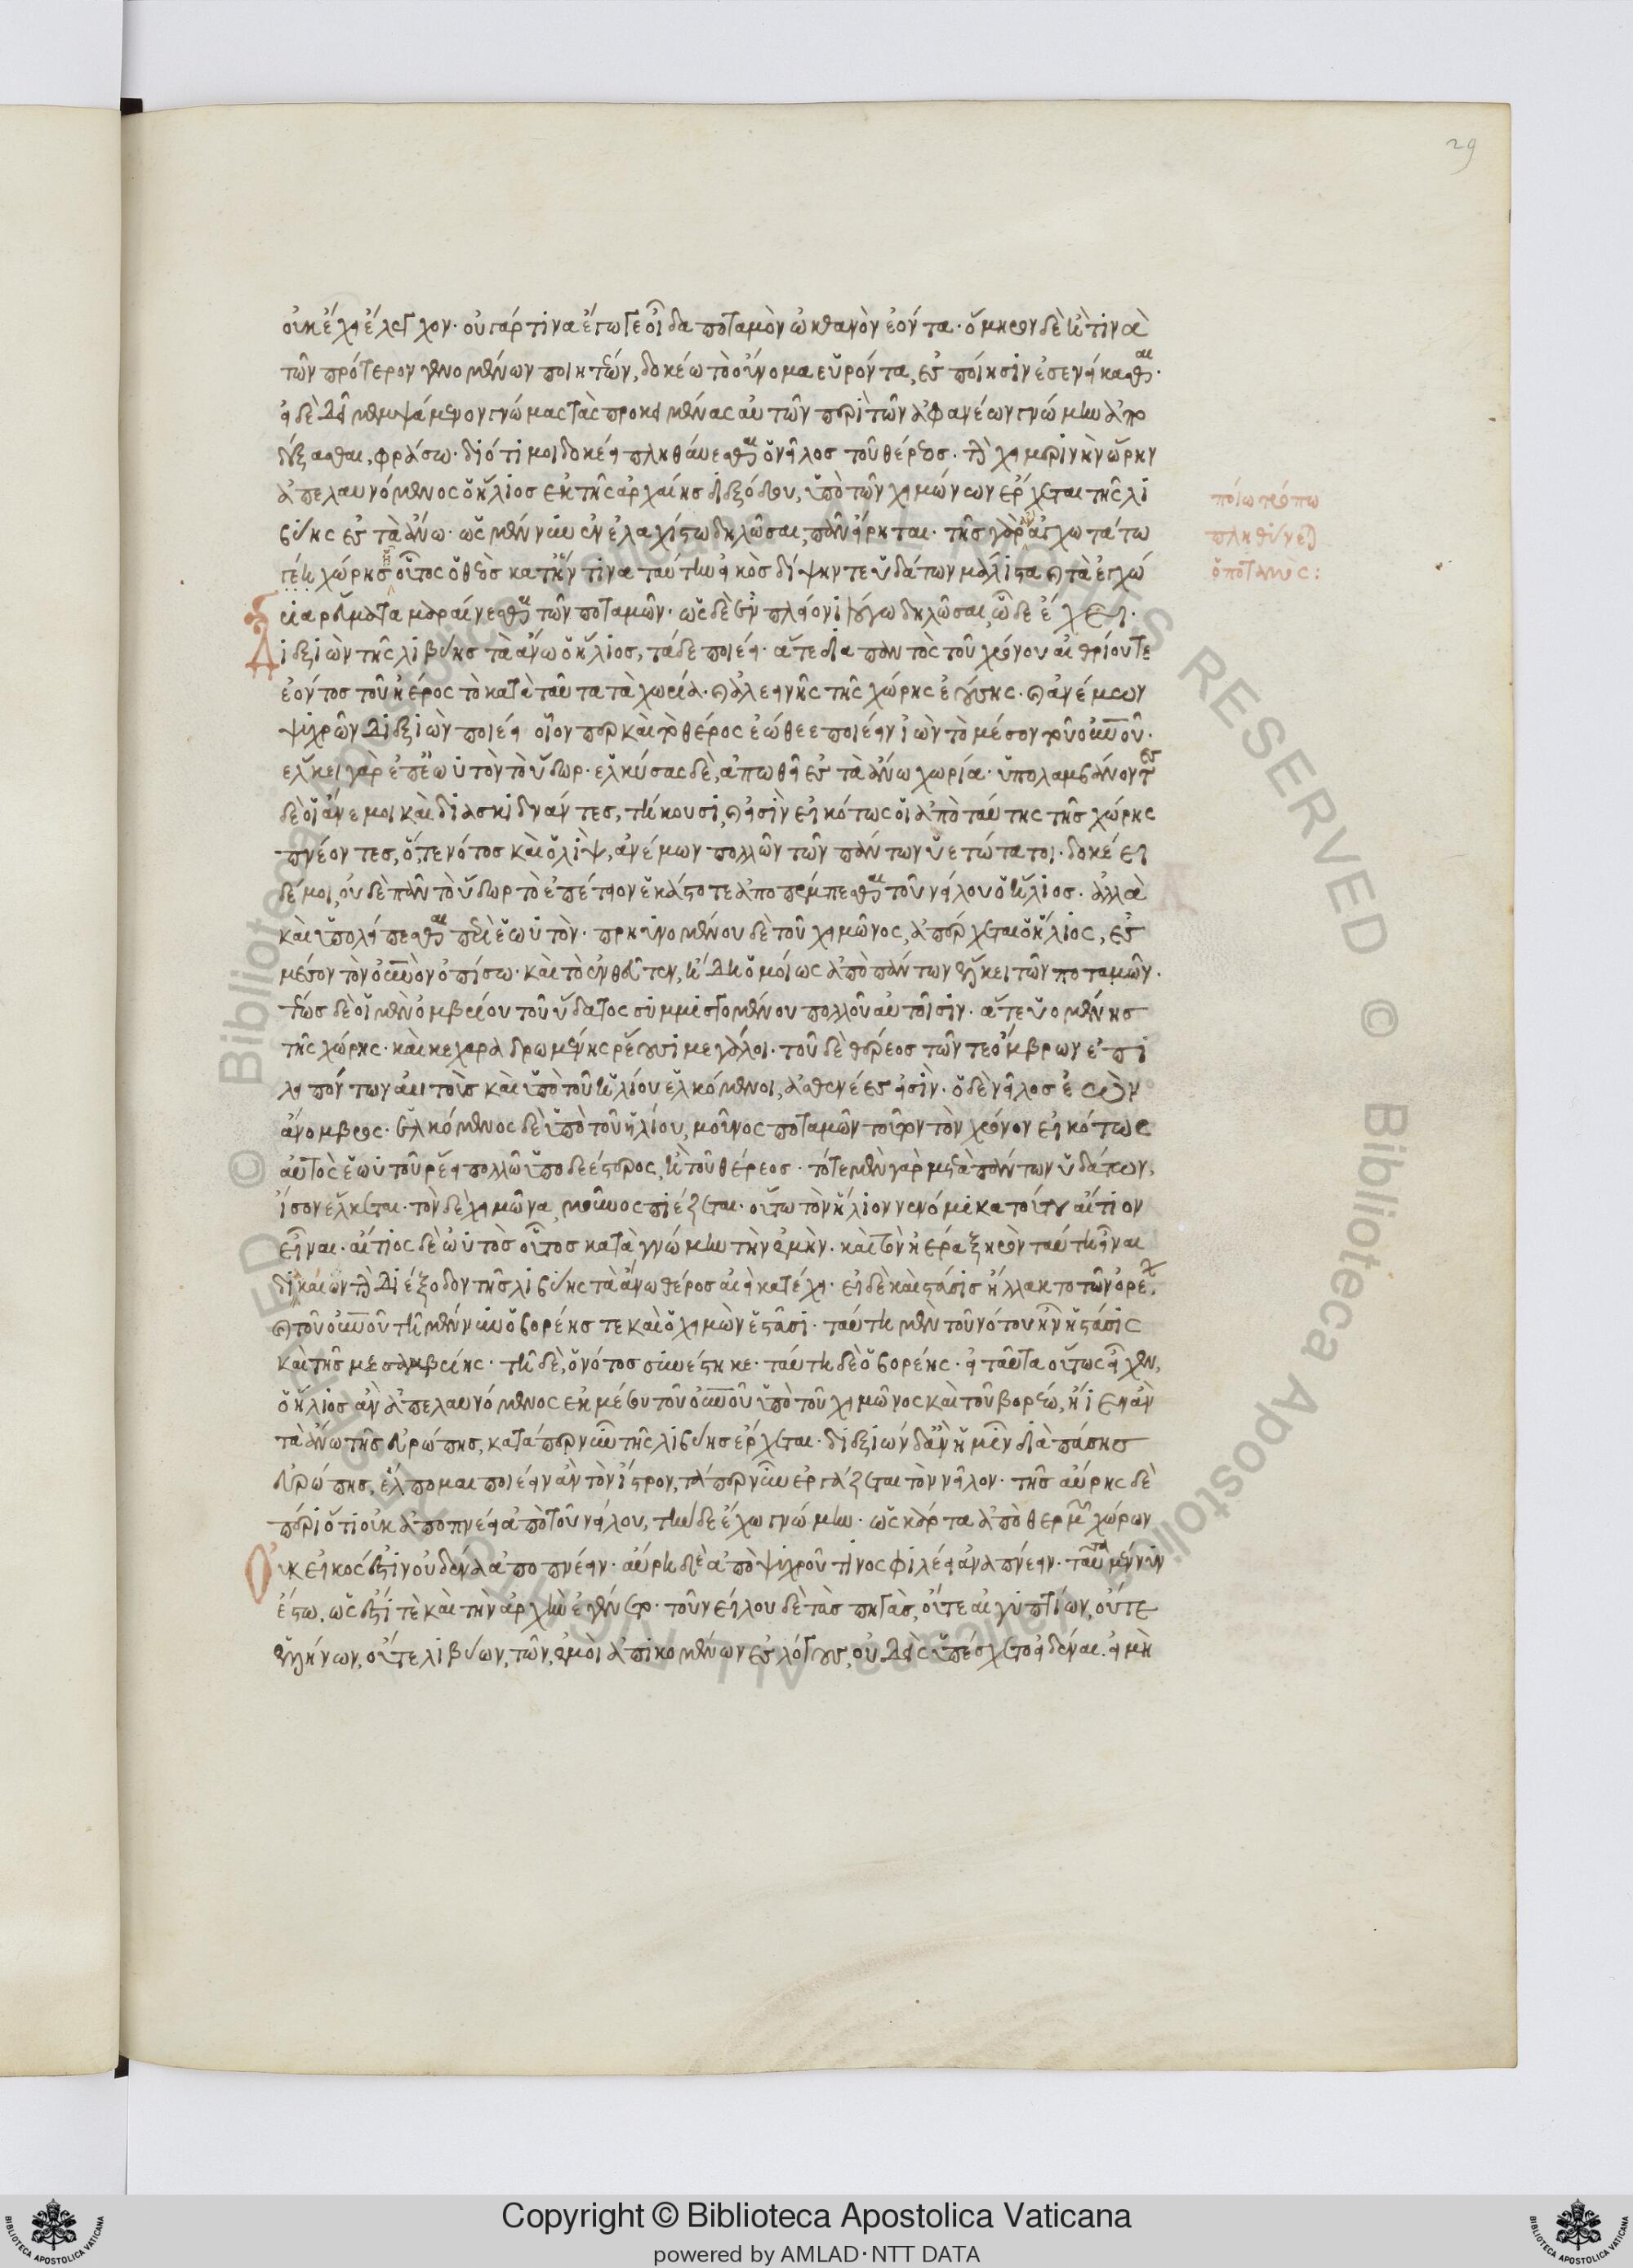 29
οὐκ ἔχει ἔλεγχον· οὐ γάρ τινα ἔγωγε οἶδα ποταμὸν ὠκεανὸν ἐόντα· ὅμηρον δὲ ἤ τινα
τῶν πρότερον γενομένων ποιητέων, δοκέω τὸ οὔνομα εὑρόντα, ἐς ποίησιν ἐσενείκασθαι·
εἰ δὲ δεῖ μεμψάμενον γνώμας τὰς προκειμένας αὐτὸν περὶ τῶν ἀφανέων γνώμην ἀπο
δέξασθαι, φράσω· διότι μοι δοκέει πληθύνεσθαι ὁ νεῖλος τοῦ θέρεος· τὴν χειμερινὴν ὥρην
ἀπελαυνόμενος ὁ ἥλιος ἐκ τῆς ἀρχαίης διεξόδου, ὑπὸ τῶν χειμώνων ἔρχεται τῆς λι
βύης ἐς τὰ ἄνω· ὡς μέν νυν ἐν ἐλαχίστω δηλῶσαι, πᾶν εἴρηται· τῆς γὰρ ἂν ἀγχωτάτω
ἔῃ χώρης οὗτος ὁ θεὸς κατ' ἥν τινα ταύτην εἰκὸς διψῆν τε ὑδάτων μάλιστα καὶ τὰ ἐγχώ
ρια ῥεύματα μαραίνεσθαι τῶν ποταμῶν· ὡς δὲ ἐν πλέονι λόγω δηλῶσαι, ὧδε ἔχει·
Διεξιὼν τῆς λιβύης τὰ ἄνω ὁ ἥλιος, τάδε ποιέει· ἅτε διὰ παντὸς τοῦ χρόνου αἰθρίου τε
ἐόντος τοῦ ἠέρος τὸ κατὰ ταῦτα τὰ χωρία· καὶ ἀλεεινῆς τῆς χώρης ἐούσης· καὶ ἀνέμων
ψυχρῶν διεξιὼν ποιέει οἷον περ καὶ τὸ θέρος ἐώθεε ποιέειν ἰὼν τὸ μέσον τοῦ οὐρανοῦ·
ἕλκει γὰρ ἐπ' ἑωυτὸν τὸ ὕδωρ· ἑλκύσας δὲ, ἀπωθεῖ ἐς τὰ ἄνω χωρία· ὑπολαμβάνοντες
δὲ οἱ ἄνεμοι καὶ διασκιδνάντες, τήκουσι, καὶ εἰσὶν εἰκότως οἱ ἀπὸ ταύτης τῆς χώρης
πνέοντες, ὅ, τε νότος καὶ ὁ λίψ, ἀνέμων πολλῶν τῶν πάντων ὑετώτατοι· δοκέει
δέ μοι, οὐδὲ πᾶν τὸ ὕδωρ τὸ ἐπέτειον ἑκάστοτε ἀποπέμπεσθαι τοῦ νείλου ὁ ἥλιος· ἀλλὰ
καὶ ὑπολείπεσθαι περὶ ἑωυτόν· πρηϋνομένου δὲ τοῦ χειμῶνος, ἀπέρχεται ὁ ἥλιος, ἐς
μέσον τὸν οὐρανὸν ὀπίσω· καὶ τὸ ἐνθεῦτεν, ἤδη ὁμοίως ἀπὸ πάντων ἕλκει τῶν ποταμῶν·
τέως δὲ οἱ μὲν ὀμβρίου τοῦ ὕδατος συμμισγομένου πολλοῦ αὐτοῖσιν· ἅτε ὑομένης
τῆς χώρης· καὶ κεχαραδρωμένης ῥέουσι μεγάλοι· τοῦ δὲ θέρεος τῶν τε ὄμβρων ἐπι
λειπόντων αὐτοὺς καὶ ὑπὸ τοῦ ἡλίου ἑλκόμενοι, ἀσθενέες εἰσίν· ὁ δὲ νεῖλος ἐὼν
ἄνομβρος· ἑλκόμενος δὲ ὑπὸ τοῦ ἡλίου, μοῦνος ποταμῶν τοῦτον τὸν χρόνον εἰκότως
αὐτὸς ἑωυτοῦ ῥέει πολλῶ ὑποδεέστερος, ἢ τοῦ θέρεος· τότε μὲν γὰρ μετὰ πάντων ὑδάτων,
ἴσον ἕλκεται· τὸν δὲ χειμῶνα, μοῦνος πιέζεται· οὕτω τὸν ἥλιον νενόμικα τούτου αἴτιον
εἶναι· αἴτιος δὲ ὡυτὸς οὗτος κατὰ γνώμην τὴν ἐμὴν· καὶ τὸν ἠέρα ξηρὸν ταύτῃ εἶναι
δικαίων τὴν διέξοδον τῆς λιβύης τὰ ἄνω θέρος αἰεὶ κατέχει· εἰ δὲ καὶ στάσις ἤλλακτο τῶν ὡρέων
καὶ τοῦ οὐρανοῦ τῇ μέν νυν ὁ βορέης τε καὶ ὁ χειμὼν ἑστᾶσι· ταύτῃ μὲν τοῦ νότου ἦν ἡ στάσις
καὶ τῆς μεσαμβρίης· τῇ δὲ, ὁ νότος νῦν ἕστηκε· ταύτῃ δὲ ὁ βορέης· εἰ ταῦτα οὕτως εἶχεν,
ὁ ἥλιος ἂν ἀπελαυνόμενος ἐκ μέσου τοῦ οὐρανοῦ ὑπὸ τοῦ χειμῶνος καὶ τοῦ βορέω, ἤιε ἂν
τὰ ἄνω τῆς εὐρώπης, κατάπερ νῦν τῆς λιβύης ἔρχεται· διεξιόντα δ' ἄν μιν διὰ πάσης
εὐρώπης, ἔλπομαι ποιέειν ἂν τὸν ἴστρον, τάπερ νῦν ἐργάζεται τὸν νεῖλον· τῆς αὔρης δὲ
πέρι ὅτι οὐκ ἀποπνέει ἀπὸ τοῦ νείλου, τήνδε ἔχω γνώμην· ὡς κάρτα ἀπὸ θερμῶν χώρων
Οὐκ εἰκός ἐστιν οὐδὲν ἀποπνέειν· αὔρη δὲ ἀπὸ ψυχροῦ τινος φιλέει ἀναπνέειν· ταῦτα μέν νυν
ἔστω, ὡς ἔστι τε καὶ τὴν ἀρχὴν ἐγένετο· τοῦ νείλου δὲ τὰς πηγὰς, οὔτε αἰγυπτίων, οὔτε
ἑλλήνων, οὔτε λιβύων, τῶν, ἐμοὶ ἀπικομένων ἐς λόγους, οὐδεὶς ὑπέσχετο εἰδέναι· εἰ μὴ
ποίω τρόπω
πληθύνεται
ὁ ποταμος:
© Biblioteca Apostolica Vaticana ALL RIGHTS RESERVED © Biblioteca Apostolica
Copyright © Biblioteca Apostolica Vaticana
powered by AMLAD·NTT DATA
BIBLIOTECA APOSTOLICA VATICANA
BIBLIOTECA APOSTOLICA VATICANA